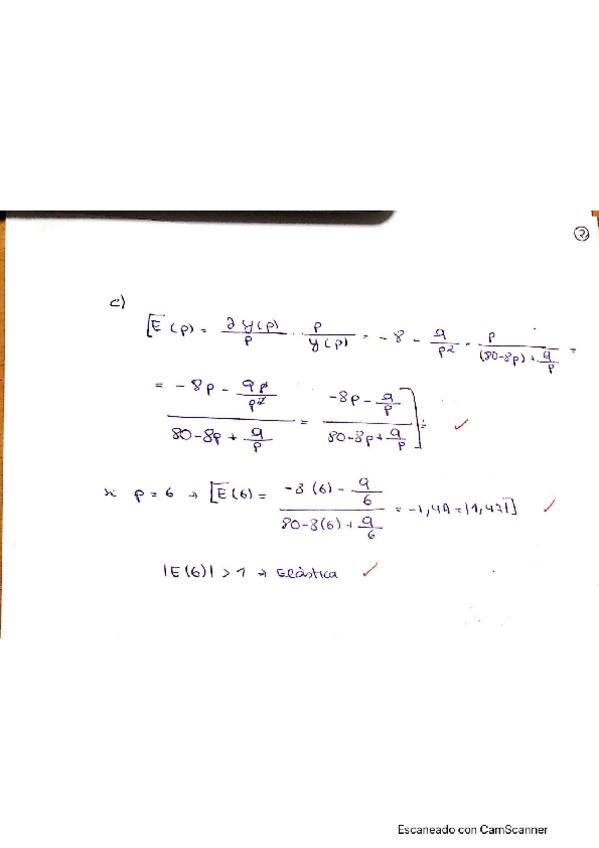 ②
c)
[E(p) = ∂y(p)/p · p/y(p) = -8 - 9/p² · p/((80-8p)+9/p) =
= (-8p - 9p/p²)/(80-8p+9/p) = (-8p - 9/p)/(80-8p+9/p)] =
p=6 → [E(6) = (-8(6) - 9/6)/(80-8(6)+9/6) = = |1,47|]
|E(6)| > 1 → Elástica
Escaneado con CamScanner